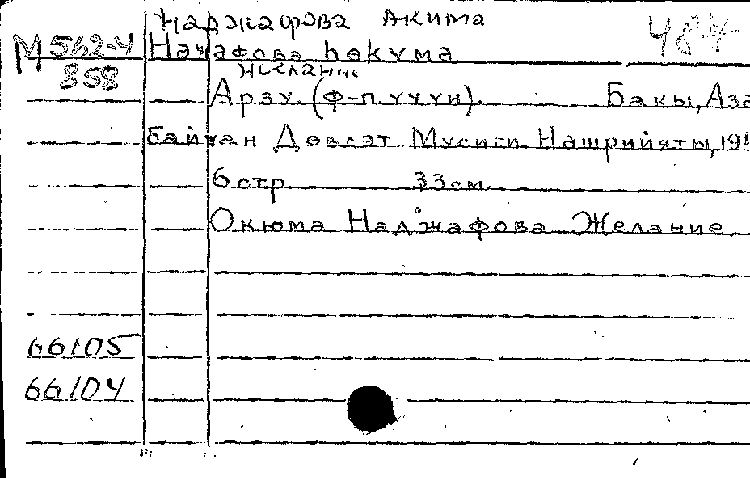 Наджафова Акима
М 562-4 Начафова Һөкума 487
358 Желание
Арзу. (Ф-п үчүн). Бакы, Азә
байҹан Дөвләт Мусиги Нәшрийяты, 195
6 стр. 33 см.
Окюма Наджафова Желание
66105
66104